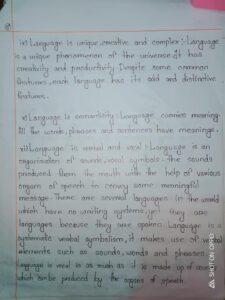 ix) Language is unique, creative and complex :- Language
is a unique phenomenon of the universe. It has
creativity and productivity. Despite some common
features, each language has its odd and distinctive
features.
x) Language is semanticity :- Language convies meaning.
All the words, phrases and sentences have meanings.
xi) Language is verbal and vocal :- Language is an
organization of sounds, vocal symbols - the sounds
produced from the mouth with the help of various
organs of speech to convey some meaningful
message. There are several languages in the world
which have no writing systems, yet they are
languages because they are spoken. Language is a
systematic verbal symbolism; it makes use of
elements such as sounds, words and phrases.
Language is vocal in as much as it is made up of
which can be produced by the organs of speech.
SHOT ON OPPO